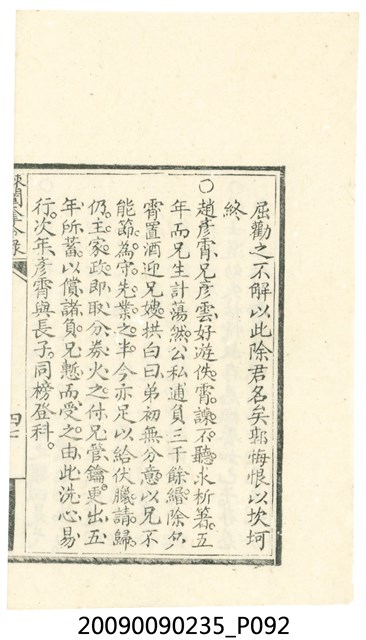 屈勸之不解以此除君名矣鄭悔恨以坎坷
終
○趙彥霄兄彥雲好遊佚霄諫不聽求析箸五
年而兄生計蕩然公私逋負三千餘緡除夕
霄置酒迎兄嫂拱白曰弟初無分意以兄不
能節為守先業之半今亦足以給伏臘請歸
仍主家政即取分劵火之付兄管鑰更出五
年所蓄以償諸負兄慙而受之由此洗心易
行次年彥霄與長子同榜登科。
20090090235_P092